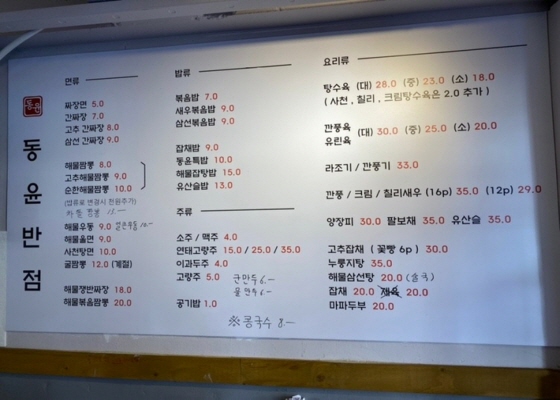 동윤
동윤반점
면류
짜장면 5.0
간짜장 7.0
고추 간짜장 8.0
삼선 간짜장 9.0
해물짬뽕 8.0
고추해물짬뽕 9.0
순한해물짬뽕 10.0
(밥류로 변경시 천원추가)
해물우동 9.0
해물울면 9.0
사천탕면 10.0
굴짬뽕 12.0 (계절)
해물쟁반짜장 18.0
해물볶음짬뽕 20.0
밥류
볶음밥 7.0
새우볶음밥 9.0
삼선볶음밥 9.0
잡채밥 9.0
동윤특밥 10.0
해물잡탕밥 15.0
유산슬밥 13.0
주류
소주 / 맥주 4.0
연태고량주 15.0 / 25.0 / 35.0
이과두주 4.0
고량주 5.0
군만두 6.-
물만두 6.-
공기밥 1.0
※ 콩국수 8.-
요리류
탕수육 (대) 28.0 (중) 23.0 (소) 18.0
( 사천 , 칠리 , 크림탕수육은 2.0 추가 )
깐풍육
유린육 (대) 30.0 (중) 25.0 (소) 20.0
라조기 / 깐풍기 33.0
깐풍 / 크림 / 칠리새우 (16p) 35.0 (12p) 29.0
양장피 30.0 팔보채 35.0 유산슬 35.0
고추잡채 ( 꽃빵 6p ) 30.0
누룽지탕 35.0
해물삼선탕 20.0 (술국)
잡채 20.0 20.0
마파두부 20.0